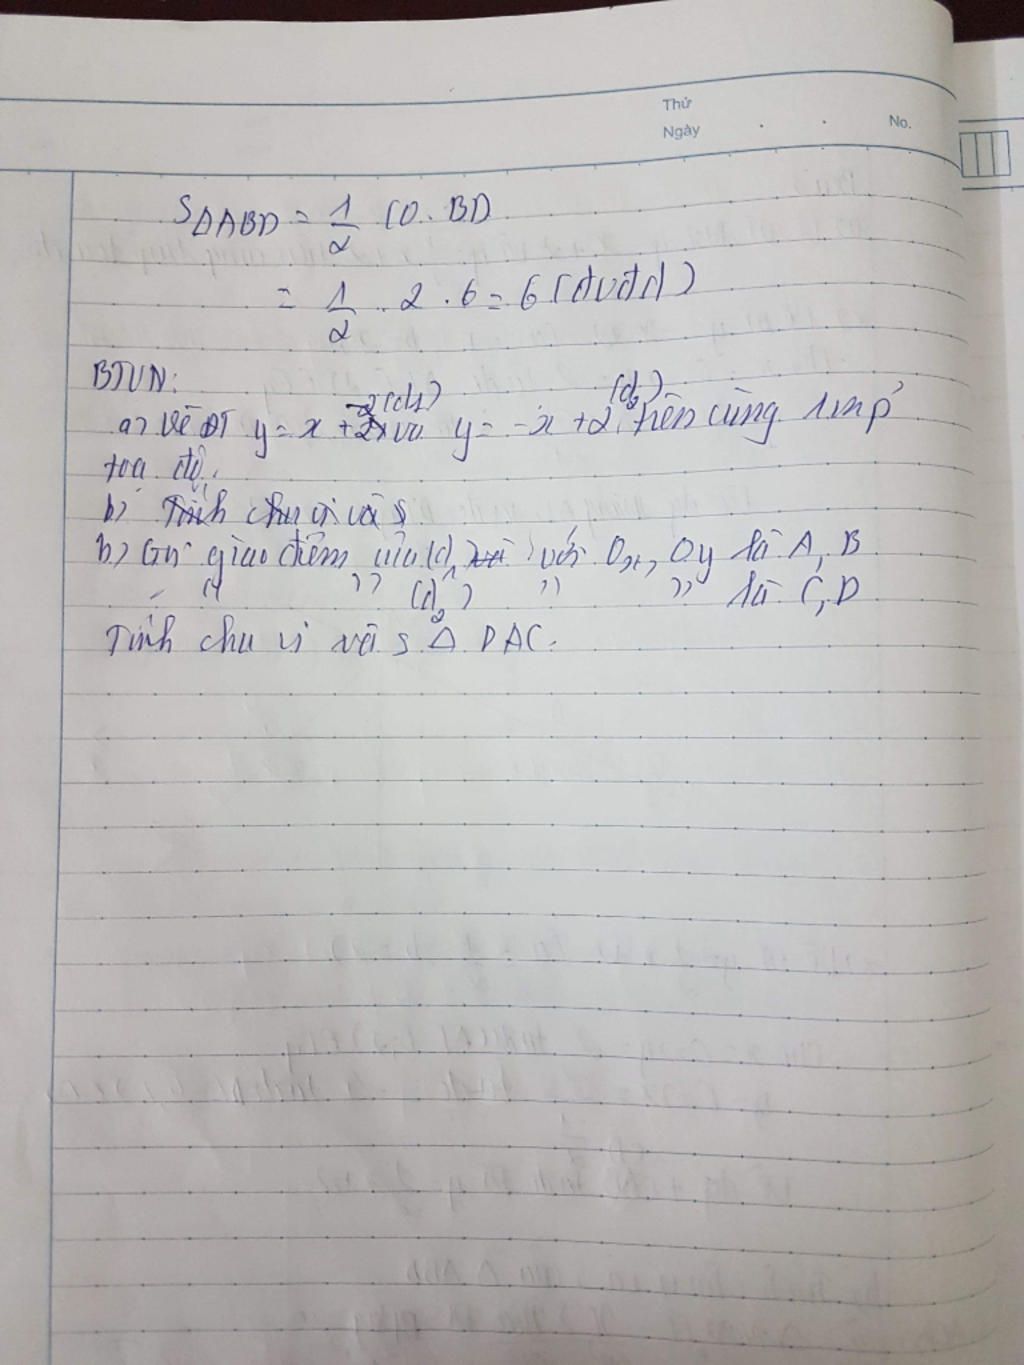 Thứ
Ngày . . No.
SΔABD = 1/2 CO. BD
= 1/2 . 2 . 6 = 6 (đvđd)
BTVN:
a) Vẽ ĐT y = x + 2 -2 (d1) và y = -x + 2 (d2) trên cùng 1 mp
toạ độ.
b) Tính chu vi và S
b) Gọi giao điểm của (d1) với Ox, Oy là A, B
" " (d2) " " là C, D
Tính chu vi và S Δ DAC.